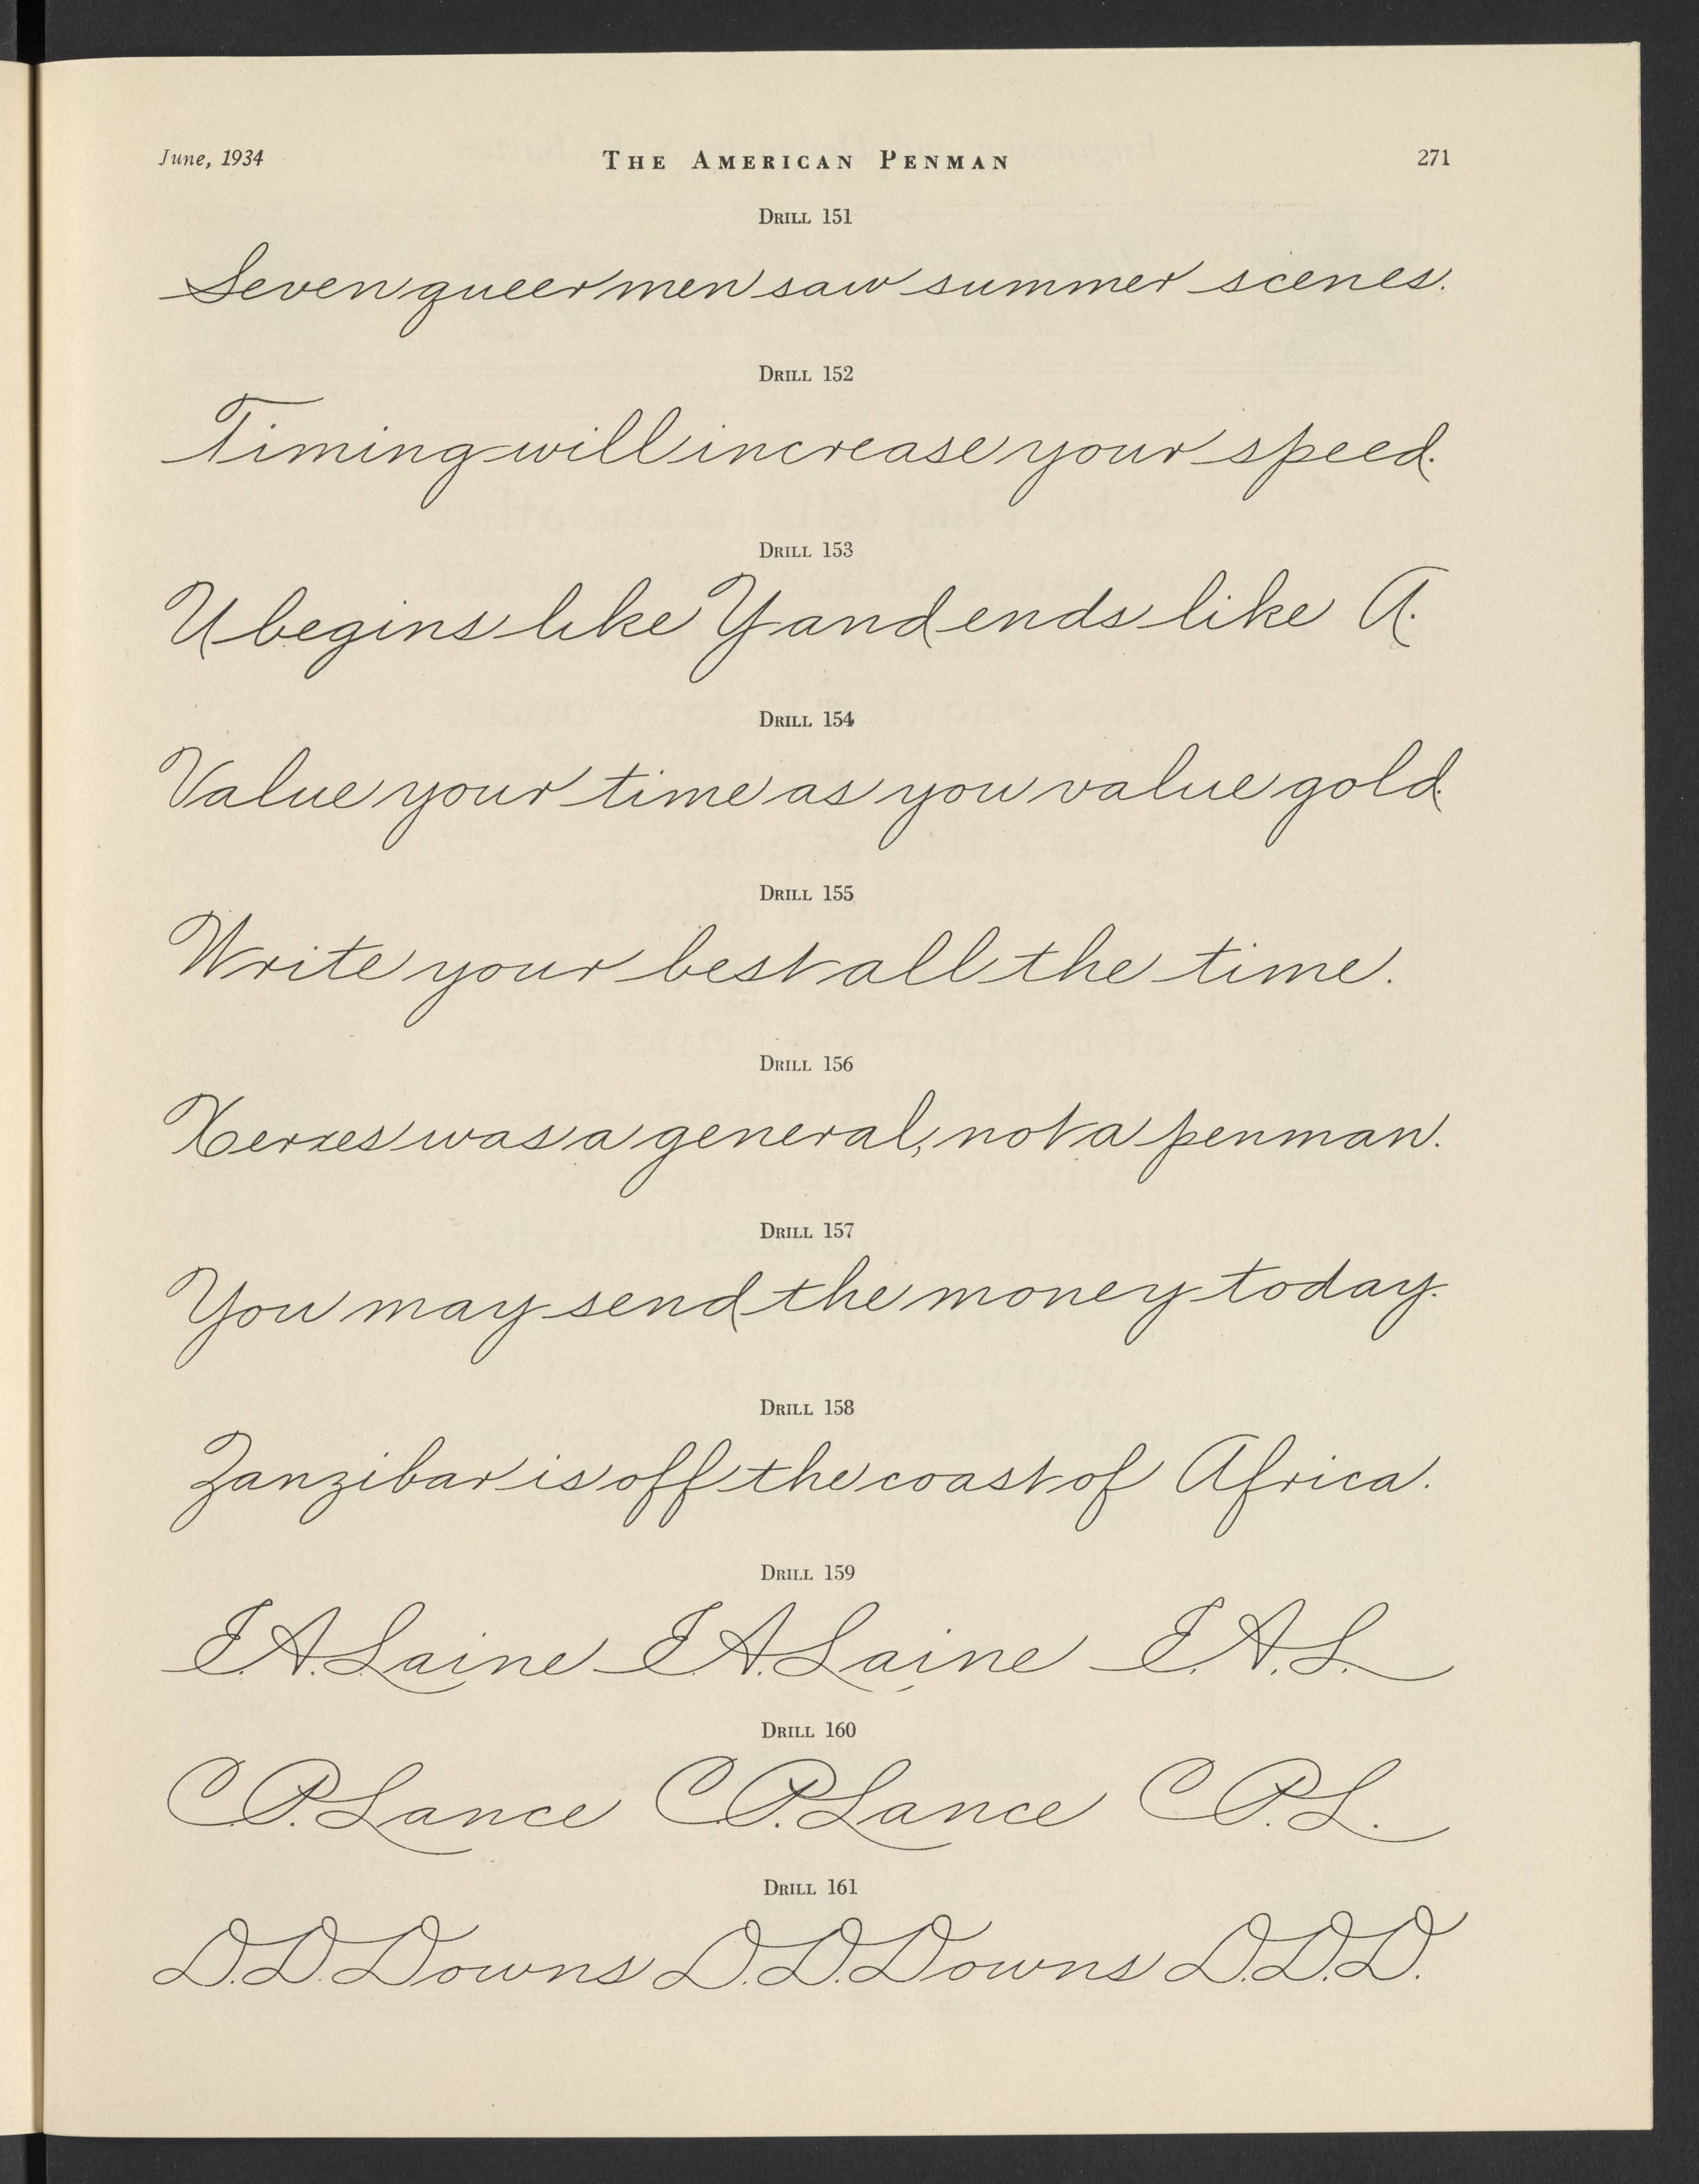 June, 1934 THE AMERICAN PENMAN 271
DRILL 151
Seven queer men saw summer scenes.
DRILL 152
Timing will increase your speed.
DRILL 153
U begins like Y and ends like A.
DRILL 154
Value your time as you value gold.
DRILL 155
Write your best all the time.
DRILL 156
Xerxes was a general, not a penman.
DRILL 157
You may send the money today.
DRILL 158
Zanzibar is off the coast of Africa.
DRILL 159
E. A. Laine E. A. Laine E. A. L.
DRILL 160
C. P. Lance C. P. Lance C. P. L.
DRILL 161
D. D. Downs D. D. Downs D. D. D.